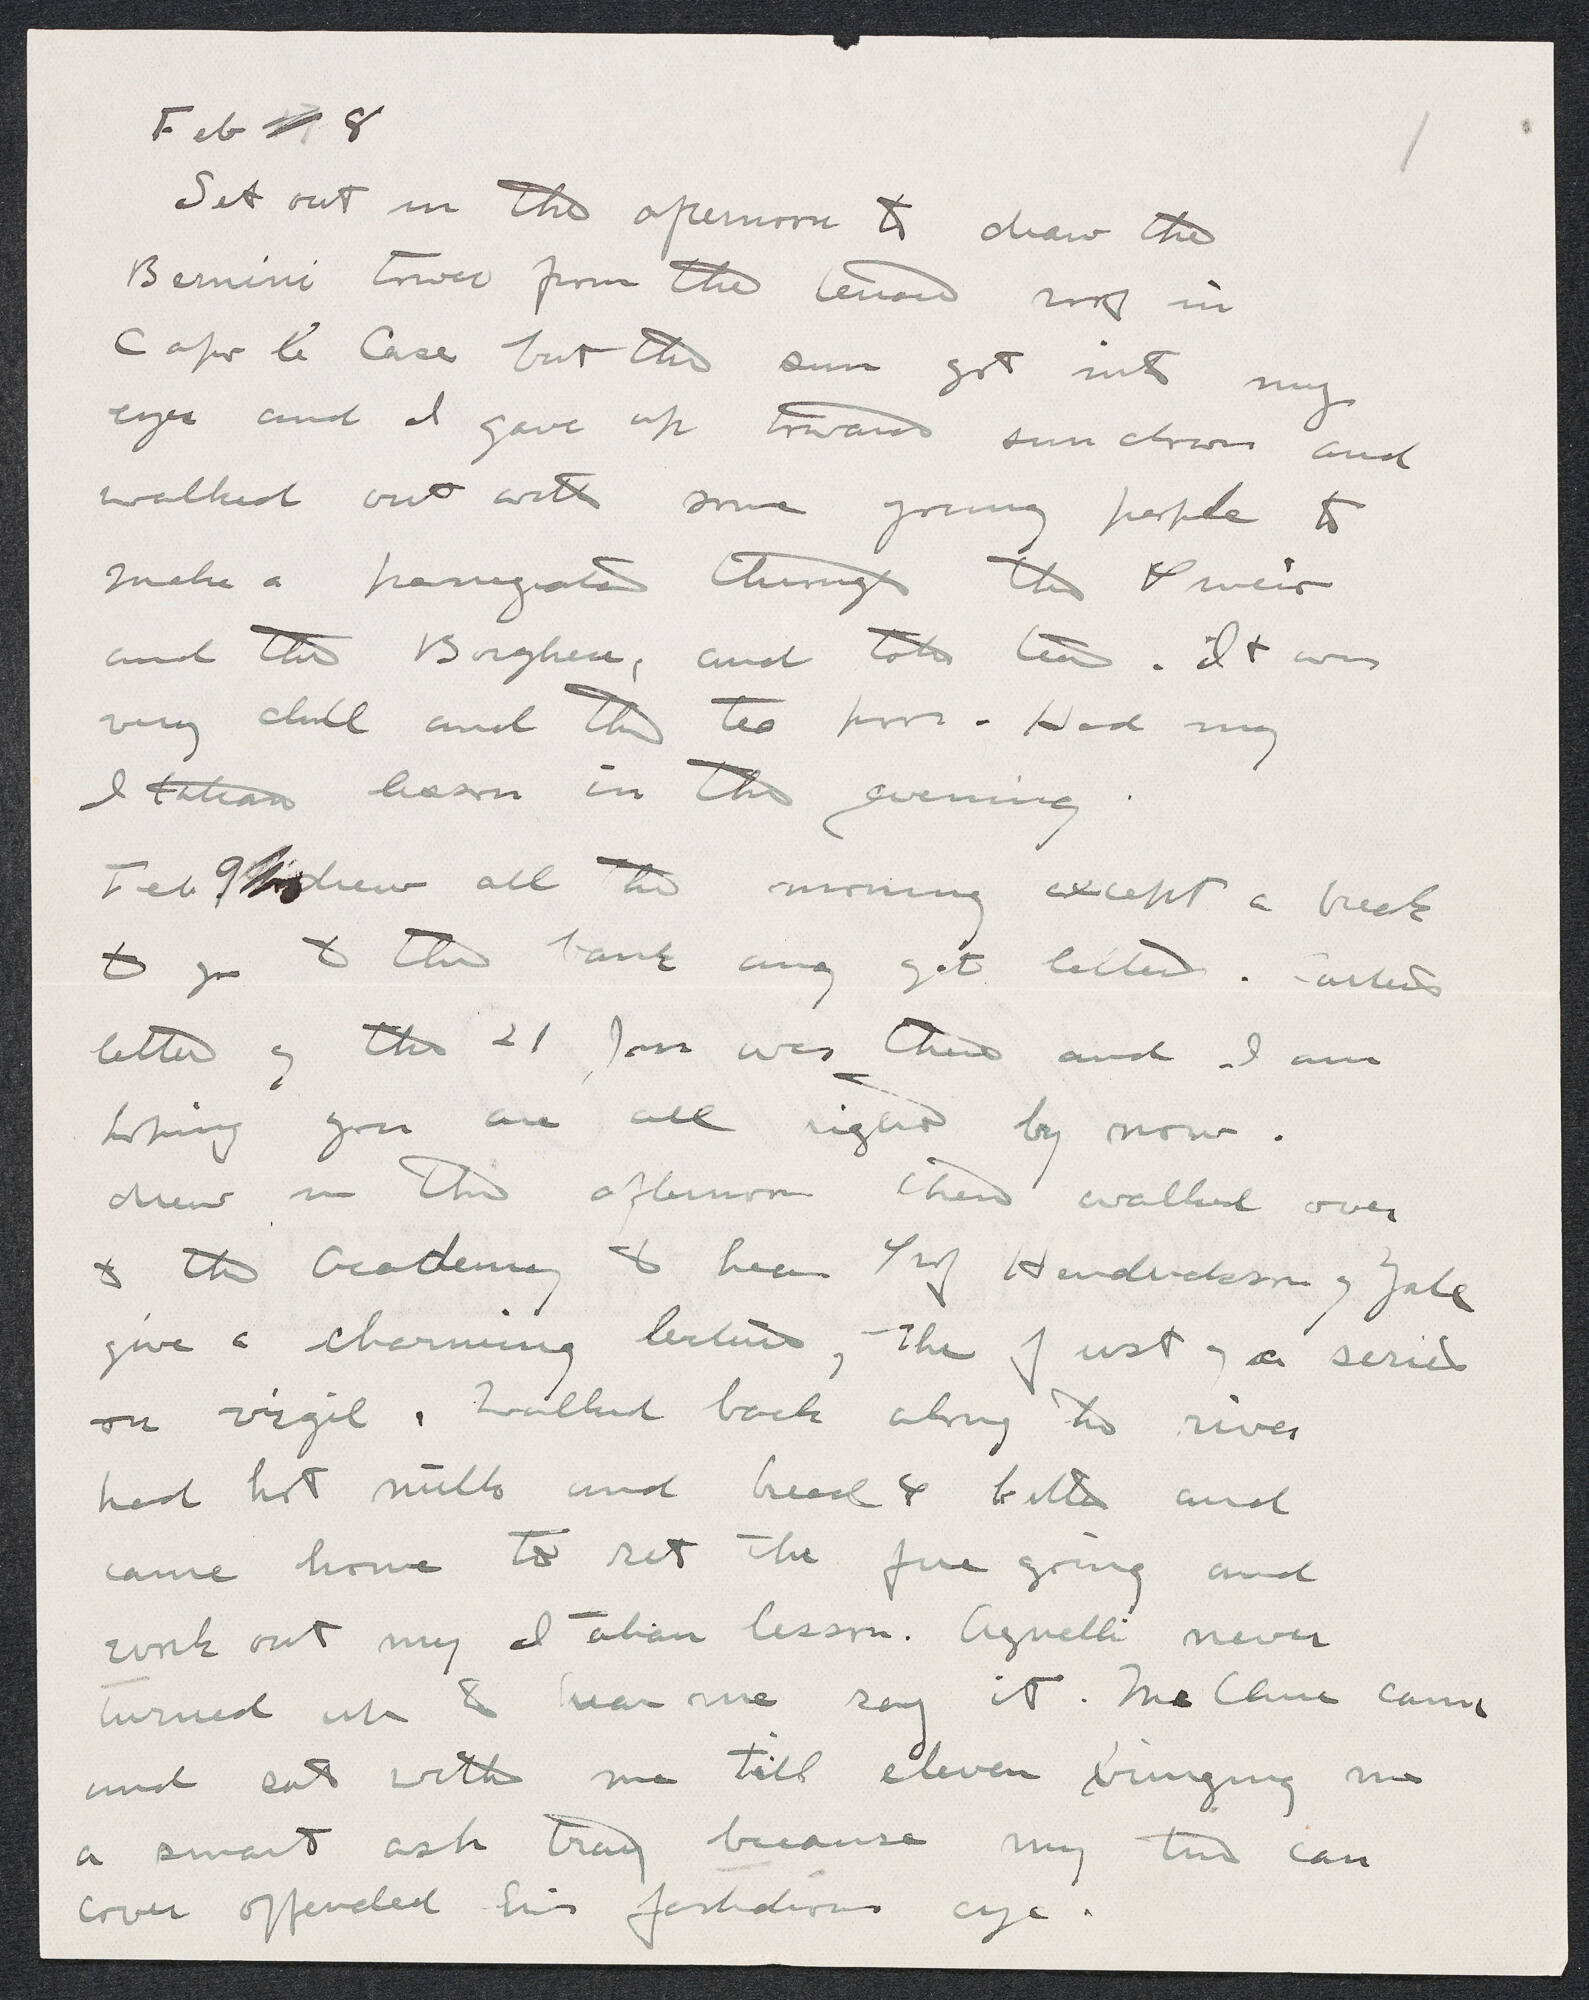 1
Feb 8
Set out in the afternoon to draw the
Bernini tower from the terrace roof in
Capo le Case but the sun got into my
eyes and I gave up towards sundown and
walked out with some young people to
make a passegiata through the Pincio
and the Borghese, and take tea. It was
very chill and the tea poor. Had my
Italian lesson in the evening.
Feb 9 drew all the morning except a break
to go to the bank and get letters.
letter of the 21 Jan was there and I am
hoping you are all right by now.
drew in the afternoon then walked over
to the Academy to hear Prof Hendrickson of Yale
give a charming lecture, The first of a series
on virgil. Walked back along the river
had hot milk and bread & butter and
came home to set the fire going and
work out my Italian lesson. Agnelli never
turned up to hear me say it. McClure came
and sat with me till eleven bringing me
a smart ash tray because my tin can
cover offended his fastidious eye.